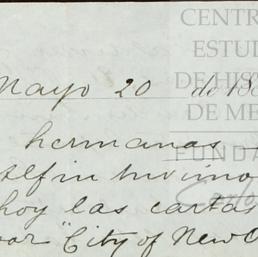 CENTR
ESTUD
DE HIS
DE ME
FUNDA
Mayo 20 de 18
hermanas
Alfin tuvimo
hoy las cartas
"City of New O